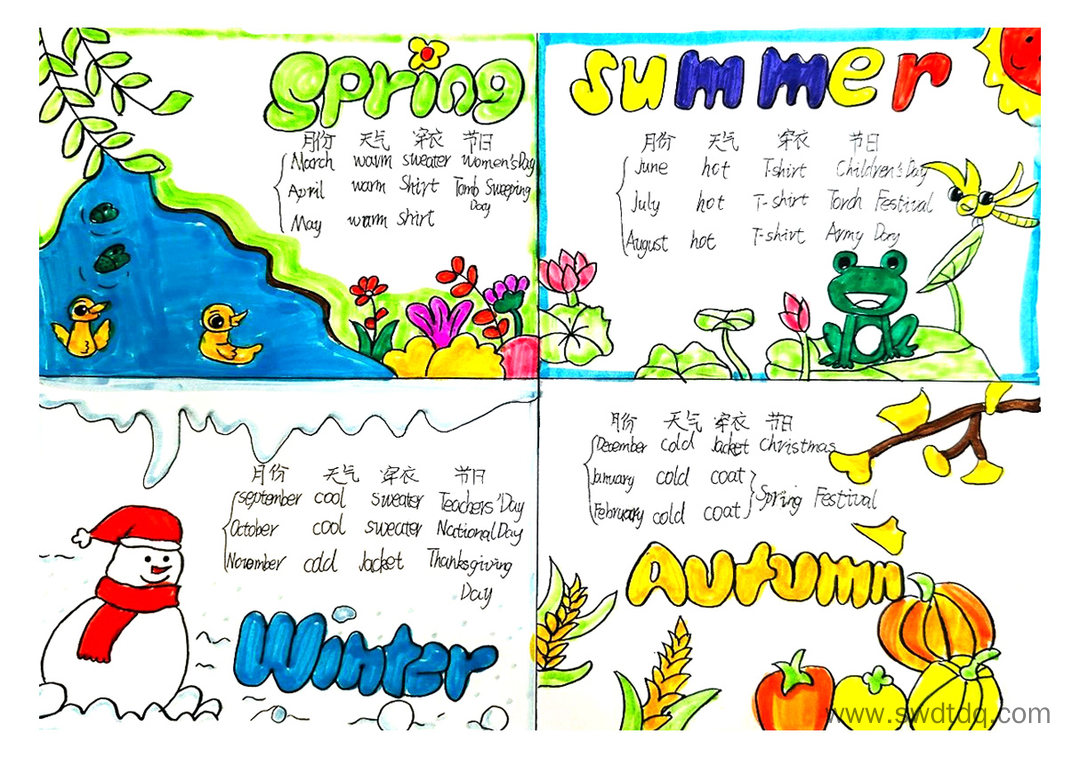 Spring
月份 天气 穿衣 节日
March warm sweater Women's Day
April warm Shirt Tomb Sweeping
Day
May warm shirt
summer
月份 天气 穿衣 节日
June hot T-shirt Children's Day
July hot T-shirt Torch Festival
August hot T-shirt Army Day
月份 天气 穿衣 节日
september cool sweater Teachers' Day
October cool sweater National Day
November cold Jacket Thanksgiving
Day
Winter
月份 天气 穿衣 节日
December cold Jacket Christmas
January cold coat
Spring Festival
February cold coat
Autumn
www.swdtdq.com